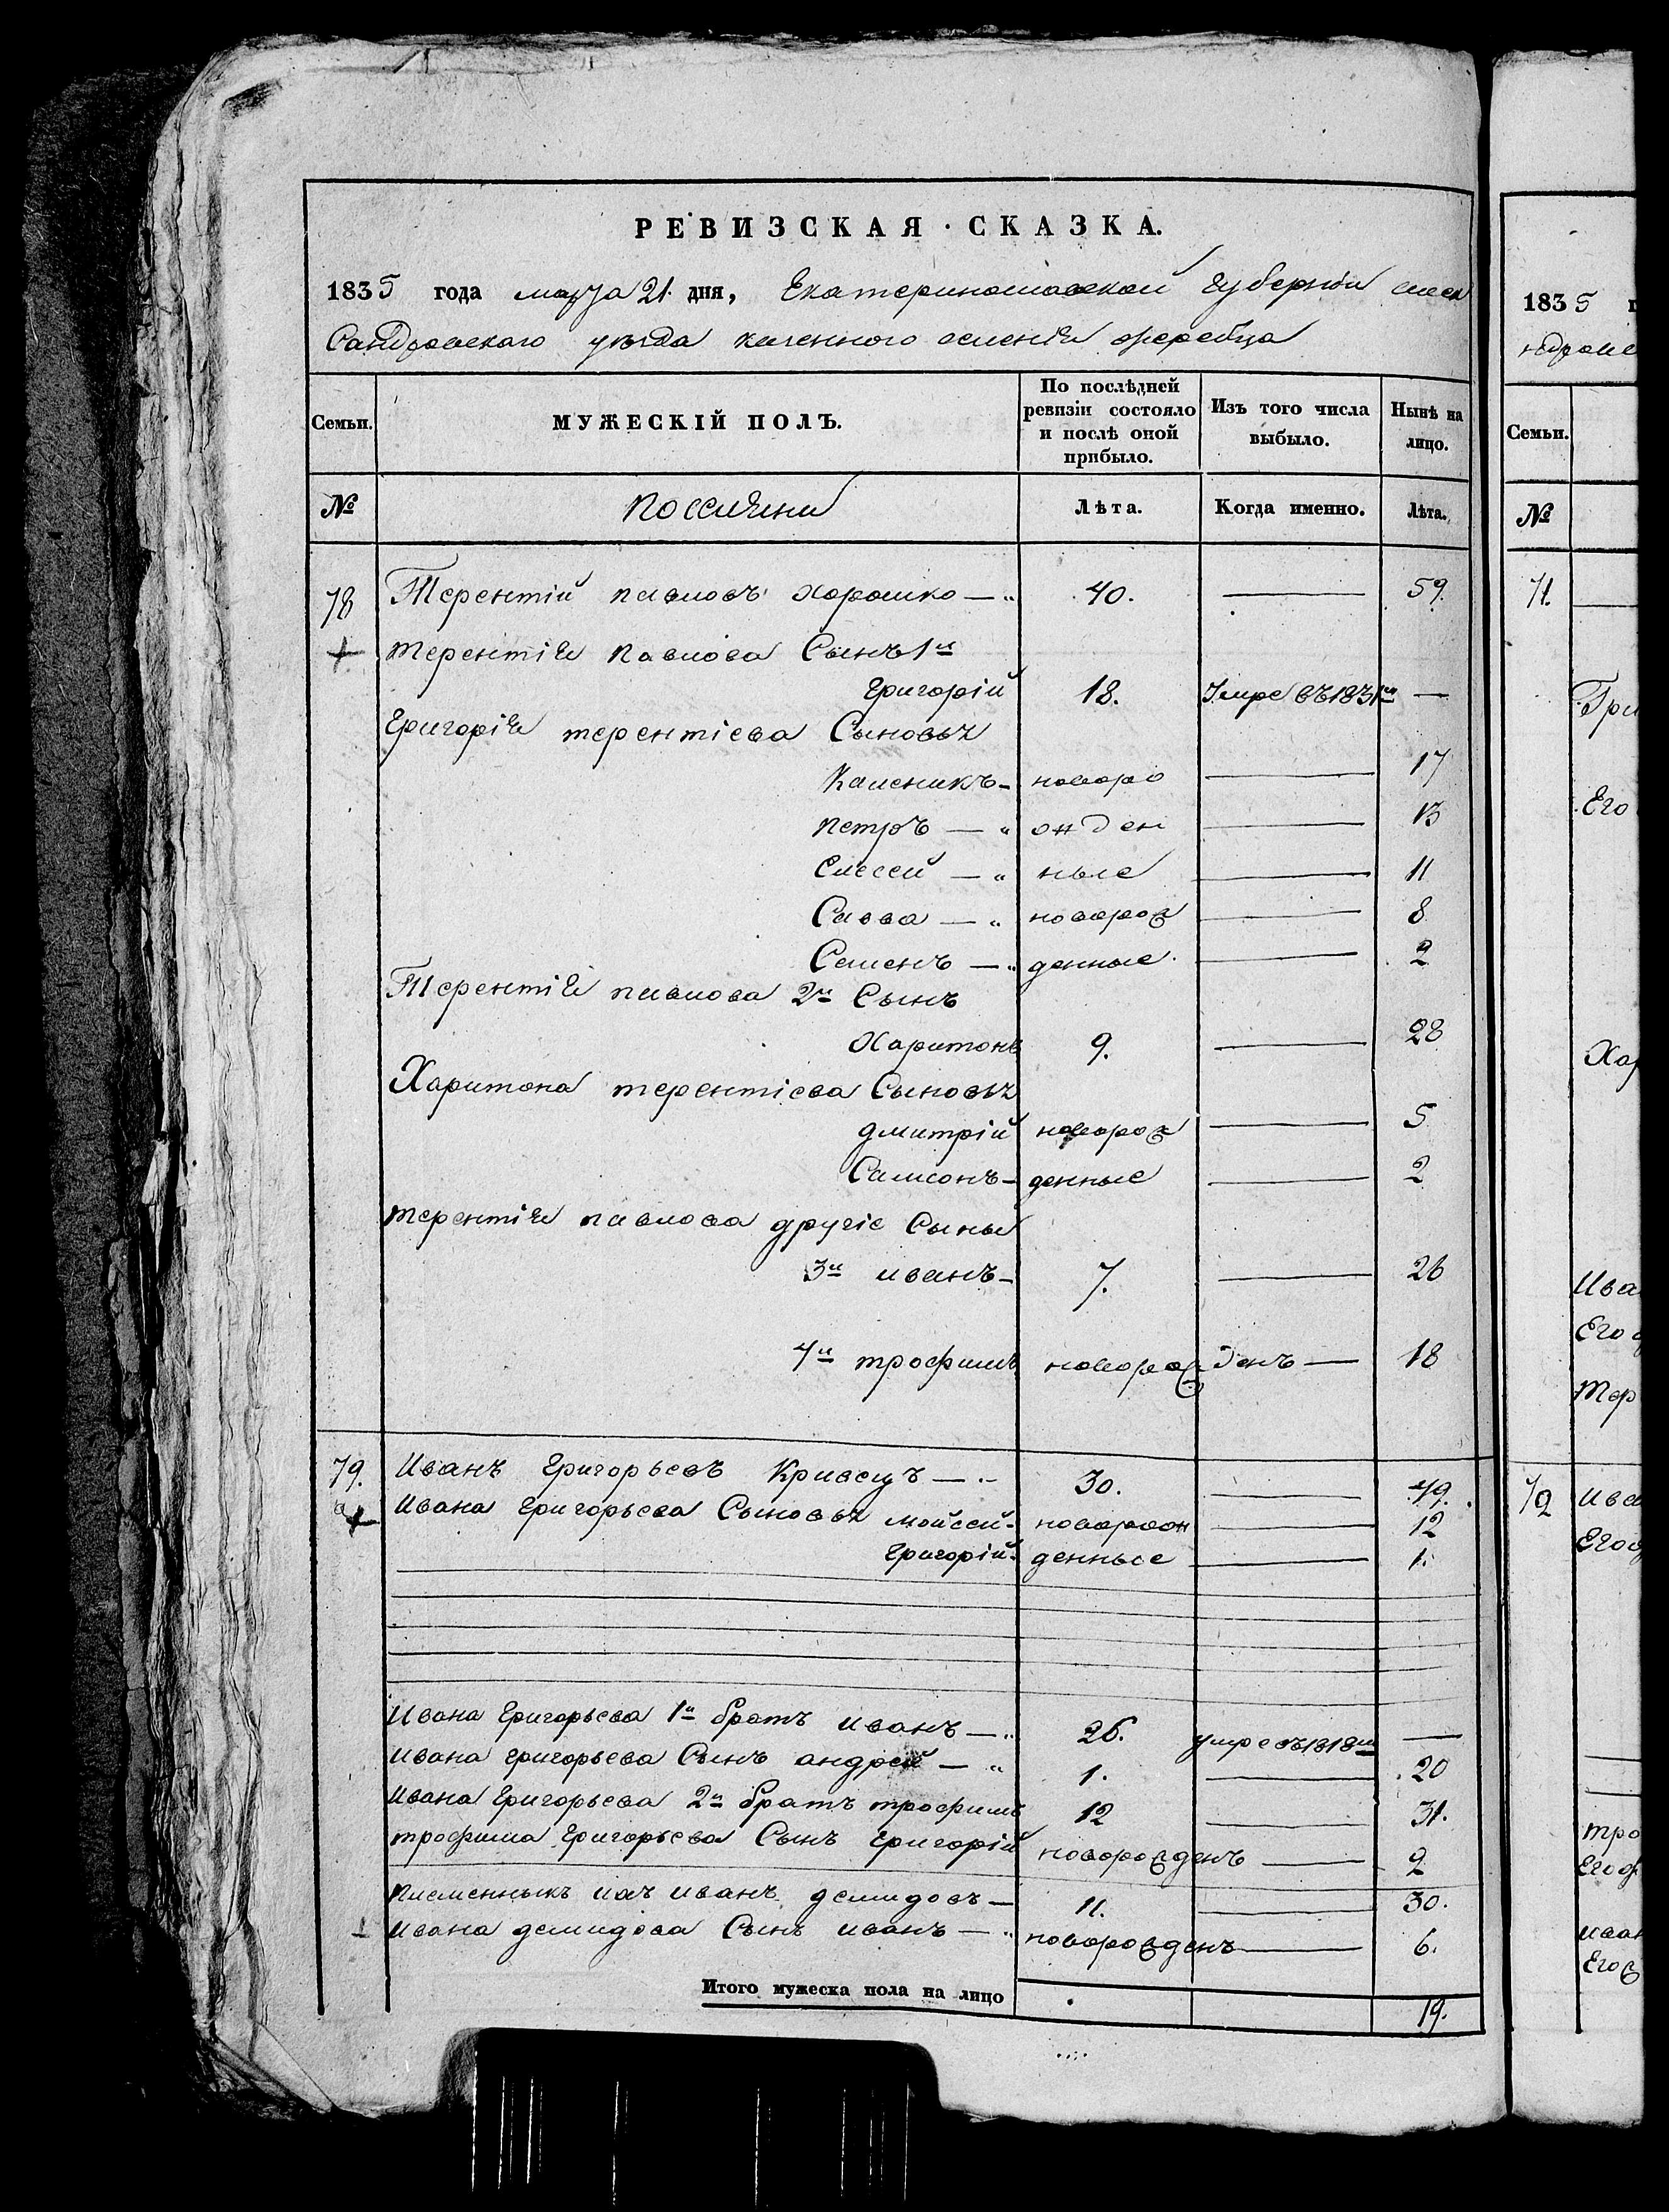 РЕВИЗСКАЯ · СКАЗКА.
1835 года марта 21. дня, Екатеринославской губернiи алек
сандровского уезда казенного селенiя жеребца
Семьи. МУЖЕСКІЙ ПОЛЪ. По послѣдней ревизіи состояло и послѣ оной прибыло. Изъ того числа выбыло. Нынѣ на лицо.
№ Поселяни Лѣта. Когда именно. Лѣта.
78 Терентій павловъ хорошко — 40. — 59.
терентія Павлова Сынъ 1й
григорій 18. Умре въ 1831м —
григорія терентіева Сыновья
Каленикъ — новоро — 17
петръ — жден — 13
елесей — ные — 11
Савва — новорож — 8
Семенъ — денные — 2
Терентія павлова 2й Сынъ
Харитонъ 9. — 28
Харитона терентіева Сыновья
дмитрій новорож — 5
Самсонъ — денные — 2
терентія павлова другіе Сыны
3й иванъ — 7. — 26
4й трофимъ новорожденъ — 18
79. Иванъ григорьевъ Кривецъ — 30. — 49.
Ивана григорьева Сыновья мойсей — новорож — 12
григорій — денные — 1.
Ивана григорьева 1й братъ иванъ — 26. умре въ 1818м —
ивана григорьева Сынъ андрей — 1. — 20
Ивана григорьева 2й братъ трофимъ 12 — 31.
трофима григорьева Сынъ григорій новорожденъ — 2
племенныкъ ихъ иванъ демидовъ — 11. — 30.
ивана демидова Сынъ иванъ — новорожденъ — 6.
Итого мужеска пола на лицо 19.
1835
ндровс
Семьи.
№
71.
Гри
Его
Хар
Ива
Его
Тер
72 ива
Его
тро
Его
иван
Его